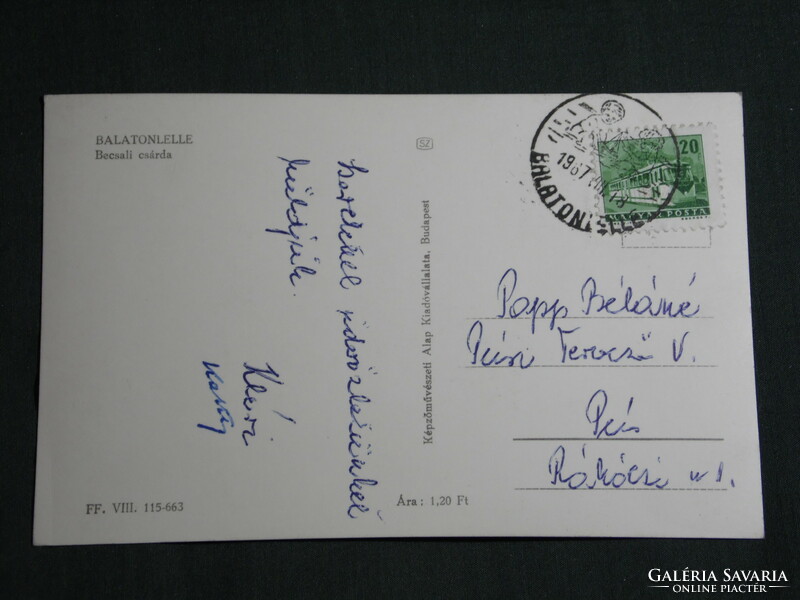 BALATONLELLE
Becsali csárda
Szeretettel üdvözletünket
küldjük.
Klári
FF. VIII. 115-663
Képzőművészeti Alap Kiadóvállalata, Budapest
Ára: 1,20 Ft
BALATONLELLE
1967 VIII 18
20
MAGYAR POSTA
Papp Béláné
Pécs
Rákóczi u.
GALÉRIA SAVARIA
ONLINE PIACTÉR